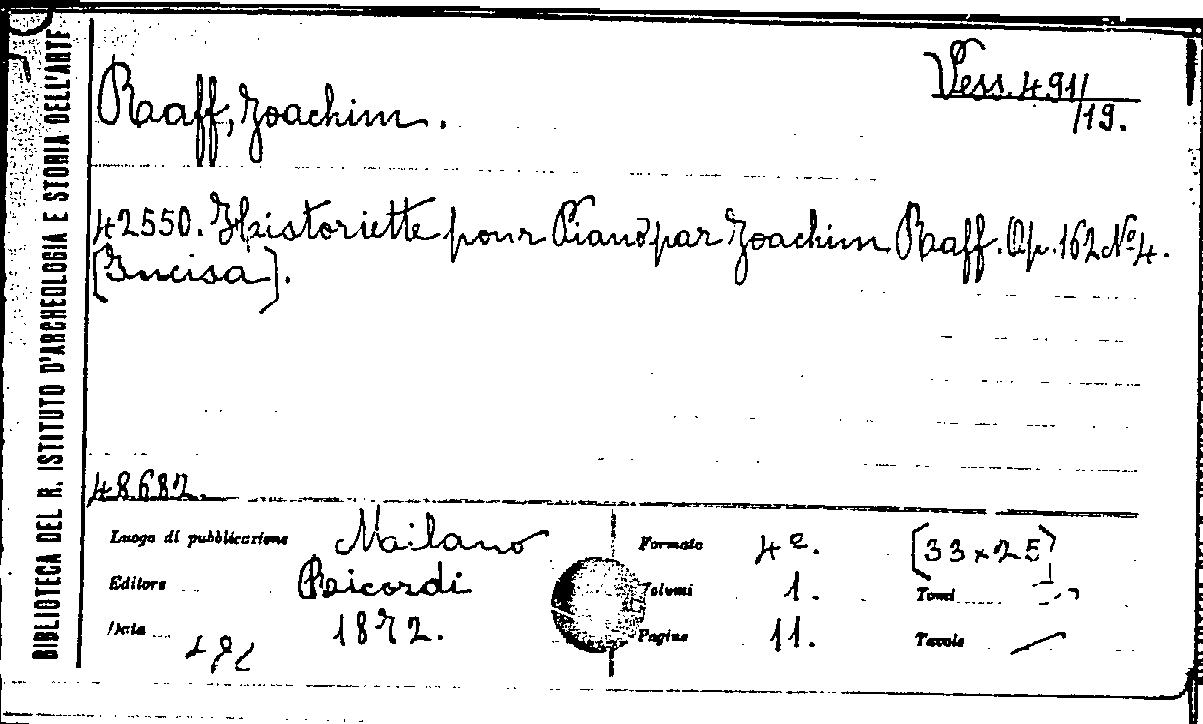 BIBLIOTECA DEL R. ISTITUTO D'ARCHEOLOGIA E STORIA DELL'ARTE
Raaff, Joachim.
Vess. 491/
/19.
42550. Historiette pour Piano par Joachim Raaff. Op. 162 Nº 4.
[Incisa].
48682.
Luogo di pubblicazione Milano
Editore Ricordi
Data 1872.
Formato 4º. [33×25]
Volumi 1. Tomi
Pagine 11. Tavole